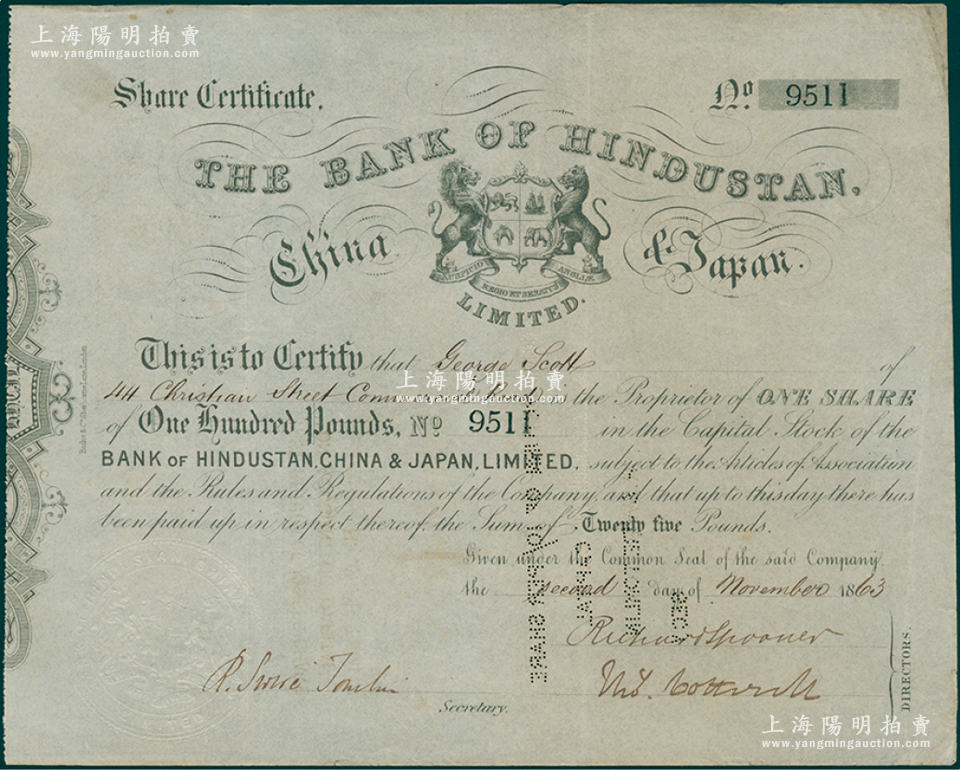 上海陽明拍賣
www.yangmingauction.com
Share Certificate.
No. 9511
THE BANK OF HINDUSTAN,
China & Japan.
AUSPICIO REGIO ET SENATUS ANGLIÆ
LIMITED.
This is to Certify that George Scott of
44 Christian Street the Proprietor of ONE SHARE
上海陽明拍賣
www.yangmingauction.com
of One Hundred Pounds, No 9511 in the Capital Stock of the
BANK OF HINDUSTAN, CHINA & JAPAN, LIMITED, subject to the Articles of Association
and the Rules and Regulations of the Company, and that up to this day there has
been paid up in respect thereof, the Sum of Twenty five Pounds.
Given under the Common Seal of the said Company
the second day of November 1863
Richard Spooner
DIRECTORS.
Secretary.
上海陽明拍賣
www.yangmingauction.com